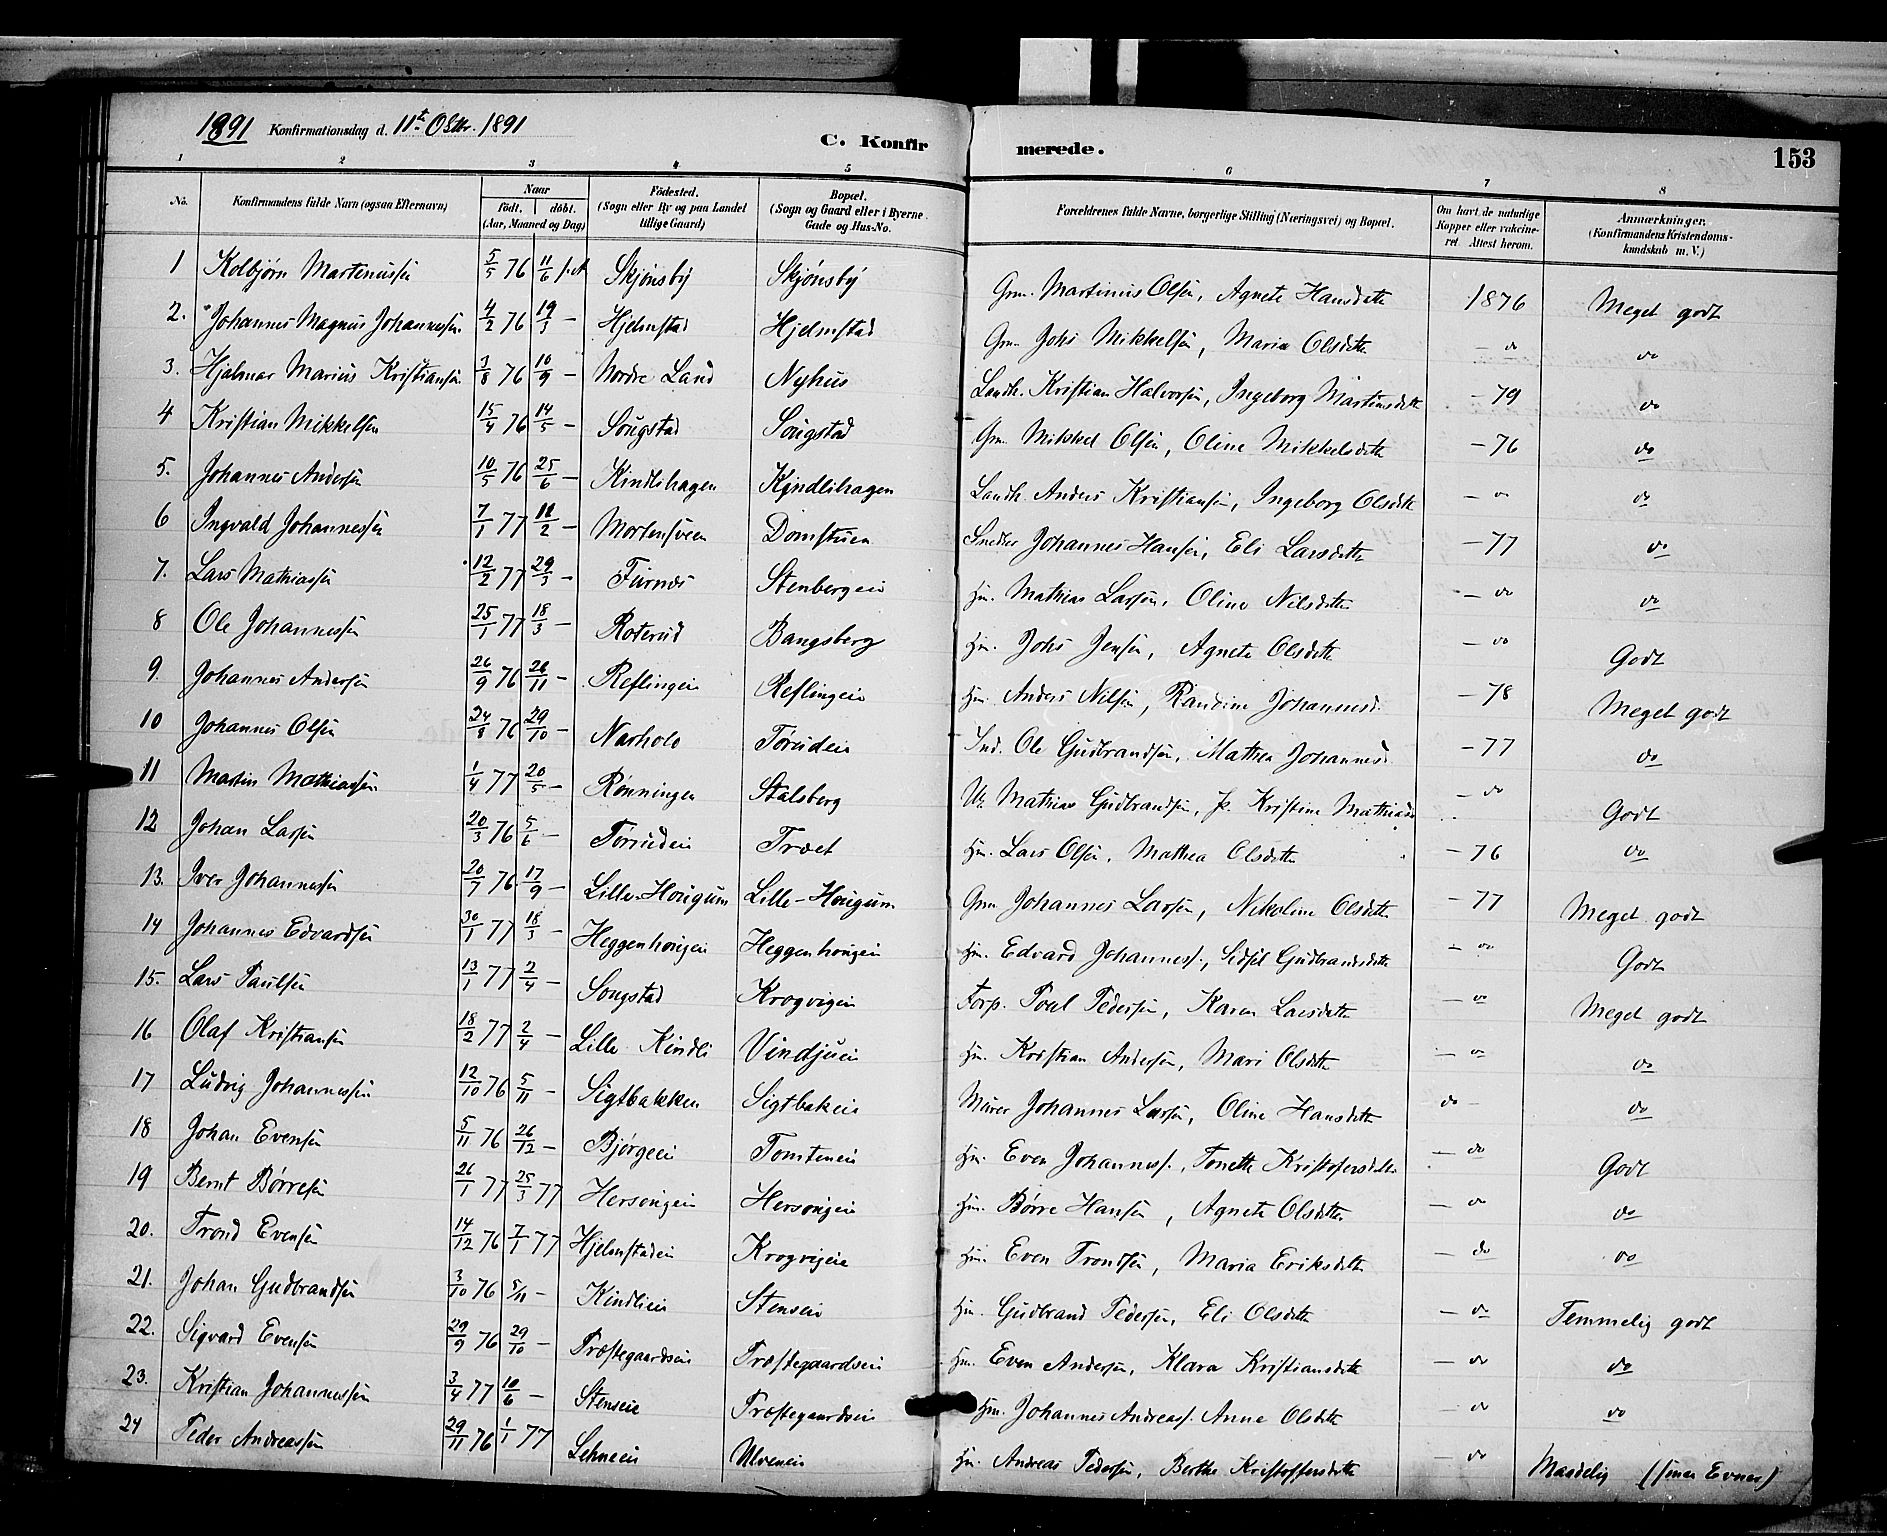 1891 Konfirmationsdag d. 11te Oktbr. 1891
C. Konfirmerede.
153
1 2 3 4 5 6 7 8
No. Konfirmandens fulde Navn (ogsaa Efternavn) Naar født. døbt. (Aar, Maaned og Dag) Fødested. (Sogn eller By og paa Landet tillige Gaard) Bopæl. (Sogn og Gaard eller i Byerne Gade og Hus-No. Forældrenes fulde Navne, borgerlige Stilling (Næringsvei) og Bopæl. Om havt de naturlige Kopper eller vakcineret. Attest herom. Anmærkninger. (Konfirmandens Kristendomskundskab m. V.)
1 Kolbjørn Martinussen 5/5 76 11/6 Skjønsby Skjønsby Grm. Martinius Olsen, Agnete Hansdatter 1876 Meget godt
2. Johannes Magnus Johannessen 4/2 76 19/3 — Hjelmstad Hjelmstad Grm. Johs Mikkelsen, Maria Olsdatter — do do
3. Hjalmar Marius Kristiansen 3/8 76 10/9 — Nordre Land Nyhus Landh. Kristian Halvorsen, Ingeborg Martinsdatter — 79 do
4 Kristian Mikkelsen 15/4 76 14/5 — Sougstad Sougstad Grm. Mikkel Olsen, Oline Mikkelsdatter — 76 do
5. Johannes Andersen 10/5 76 25/6 — Kindlihagen Kindlihagen Landh. Anders Kristiansen, Ingeborg Olsdatter — do do
6 Ingvald Johannessen 7/1 77 11/2 — Mortensveen Domstuen Smed Johannes Hansen, Eli Larsdatter — 77 do
7. Lars Mathiassen 12/2 77 29/3 — Furnes Stenbergeie Hm. Mathias Larsen, Oline Nilsdatter — do do
8 Ole Johannessen 25/1 77 18/3 — Roterud Bangsberg Hm. Johs Jensen, Agnete Olsdatter — do Godt
9. Johannes Andersen 26/9 76 26/11 — Reflingeie Reflingeie Hm. Anders Nilsen, Randine Johannesd. — 78 Meget godt
10 Johannes Olsen 24/8 76 29/10 — Narholo Tørudeie Ind. Ole Gudbrandsen, Mathea Johannesd. — 77 do
11 Martin Mathiassen 1/4 77 20/5 — Rønningen Stalsberg Mathias Gudbrandsen, Kristine Mathiasd — do Godt
12 Johan Larsen 20/3 76 5/6 — Tørudeie Træet Hm. Lars Olsen, Mathea Olsdatter — 76 do
13. Iver Johannessen 20/7 76 17/9 — Lille-Hougum Lille-Hougum Grm Johannes Larsen, Nikoline Olsdatter — 77 Meget godt
14 Johannes Edvardsen 30/1 77 18/3 — Heggenhougeie Heggenhougeie Hm. Edvard Johanness., Sidsel Gudbrandsdatter — do Godt
15. Lars Paulsen 13/1 77 2/4 — Songstad Krogvigeie Forp. Poul Pedersen, Karen Larsdatter — do Meget godt
16 Olaf Kristiansen 18/2 77 2/4 — Lille Kindli Vindjueie Hm. Kristian Andersen, Mari Olsdatter — do do
17 Ludvig Johannessen 12/10 76 5/11 — Sigtbakken Sigtbakeie Murer Johannes Larsen, Oline Hansdatter do — do
18 Johan Evensen 5/11 76 26/12 — Bjørgeeie Tomteneie Hm. Even Johanness., Tonette Kristofersdatter — do Godt
19 Bernt Børresen 26/1 77 25/3 77 Hersougeie Hersougeie Hm. Børre Hansen, Agnete Olsdatter — do do
20. Trond Evensen 14/12 76 7/1 77 Hjelmstadeie Krogvigeie Hm. Even Trondsen, Maria Eriksdatter — do do
21. Johan Gudbrandsen 3/10 76 5/11 — Kindlieie Stenseie Hm. Gudbrand Pedersen, Eli Olsdatter — do Temmelig godt
22. Sigvard Evensen 29/9 76 29/10 — Præstegaardseie Præstegaardseie Hm. Even Andersen, Klara Kristiansdatter — do do
23. Kristian Johannessen 3/4 77 10/6 — Stenseie Præstegaardseie Hm. Johannes Andreass. Anne Olsdatter — do do
24 Peder Andreassen 29/11 76 1/1 77 Lehneeie Ulveneie Hm. Andreas Pedersen, Berthe Kristoffersdatter — do Maadelig (smaa Evner)